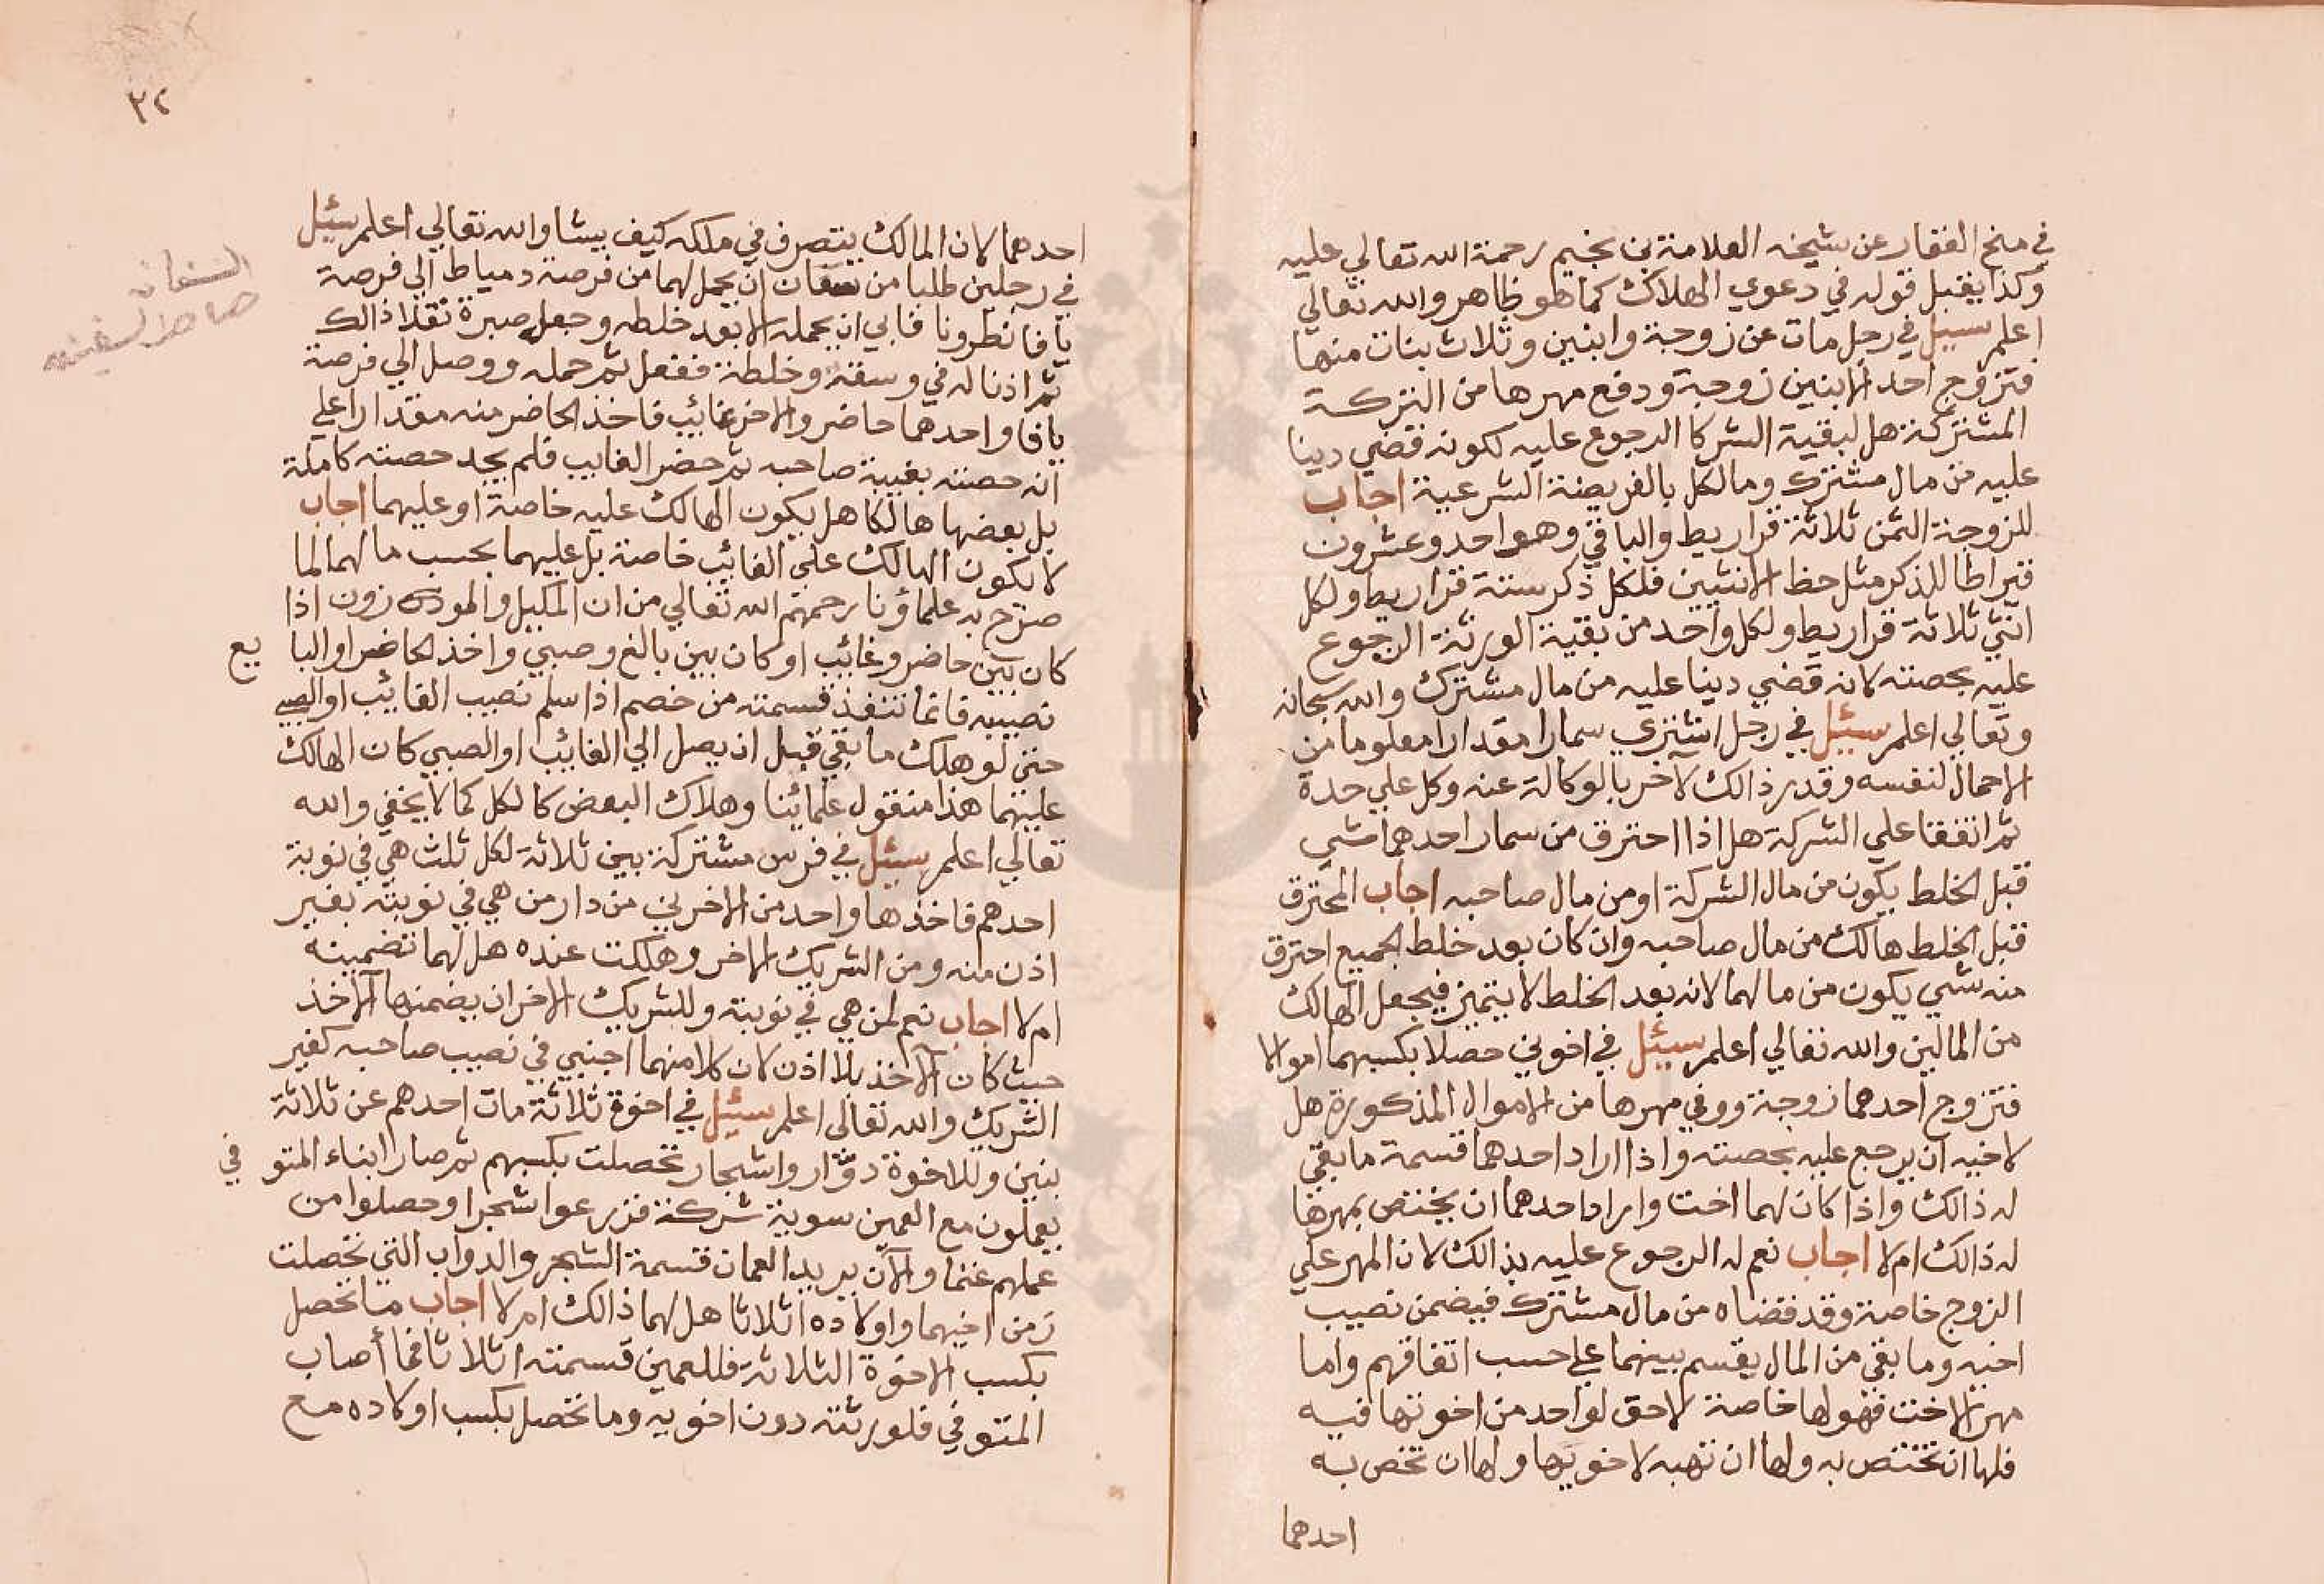 في منح الغفار عن شيخه العلامة بن نجيم رحمة الله تعالي عليه
وكذا يقبل قوله في دعوي الهلاك كما هو ظاهر والله تعالي
اعلم سيل في رجل مات عن زوجة وابنين وثلاث بنات منها
فتزوج احد الابنين زوجة ودفع مهرها من التركة
المشتركة هل لبقية الشركا الرجوع عليه لكونه قضي دينا
عليه من مال مشترك وما لكل بالفريضة الشرعية اجاب
للزوجة الثمن ثلاثة قراريط والباقي وهو احد وعشرون
قيراطا للذكر مثل حظ الانثيين فلكل ذكر ستة قراريط ولكل
انثي ثلاثة قراريط ولكل واحد من بقية الورثة الرجوع
عليه بحصته لانه قضي دينا عليه من مال مشترك والله سبحانه
وتعالي اعلم سيئل في رجل اشتري سمارا مقدارا معلوما من
الاحمال لنفسه وقدر ذالك لآخر بالوكالة عنه وكل علي حدة
ثم اتفقا علي الشركة هل اذا احترق من سمار احدهما شي
قبل الخلط يكون من مال الشركة او من مال صاحبه اجاب المحترق
قبل الخلط هالك من مال صاحبه وان كان بعد خلط الجميع احترق
منه شي يكون من مالهما لانه بعد الخلط لا يتميز فيجعل الهالك
من المالين والله تعالي اعلم سيئل في اخوين حصلا بكسبهما اموالا
فتزوج احدهما زوجة ووفي مهرها من الاموال المذكورة هل
لاخيه ان يرجع عليه بحصته واذا اراد احدهما قسمة ما بقي
له ذالك واذا كان لهما اخت واراد احدهما ان يختص بمهرها
له ذالك ام لا اجاب نعم له الرجوع عليه بذالك لان المهر علي
الزوج خاصة وقد قضاه من مال مشترك فيضمن نصيب
اخيه وما بقي من المال يقسم بينهما علي حسب اتفاقهم واما
مهر الاخت فهو لها خاصة لا حق لواحد من اخوتها فيه
فلها ان تختص به ولها ان تهبه لاخويها ولها ان تخص به
احدهما
٣٢
احدهما لان المالك يتصرف في ملكه كيف يشا والله تعالي اعلم سيئل
في رجلين طلبا من سفان ان يحمل لهما من فرصة دمياط الي فرصة
يافا نطرونا فابي ان يحمله الا بعد خلطه وجعله صبرة نقلا ذالك
ثم اذنا له في وسقه وخلطه ففعل ثم حمله ووصل الي فرصة
يافا واحدهما حاضر والاخر غائب فاخذ الحاضر منه مقدارا علي
انه حصته بغيبة صاحبه ثم حضر الغايب فلم يجد حصته كاملة
بل بعضها هالكا هل يكون الهالك عليه خاصة او عليهما اجاب
لا يكون الهالك علي الغائب خاصة بل عليهما بحسب ما لهما لما
صرح به علماؤنا رحمهم الله تعالي من ان المكيل والموزون اذا
كان بين حاضر وغائب او كان بين بالغ وصبي واخذ الحاضر او البا يع
نصيبه فانما تنفذ قسمته من خصم اذا سلم نصيب الغائب او الصبي
حتي لو هلك ما بقي قبل ان يصل الي الغائب او الصبي كان الهالك
عليهما هذا منقول علمائنا وهلاك البعض كالكل كما لا يخفي والله
تعالي اعلم سيئل في فرس مشتركة بين ثلاثة لكل ثلث هي في نوبة
احدهم فاخذها واحد من الاخرين من دار من هي في نوبته بغير
اذن منه ومن الشريك الاخر وهلكت عنده هل لهما تضمينه
ام لا اجاب نعم لمن هي في نوبته وللشريك الاخر ان يضمنها الآخذ
حيث كان الآخذ بلا اذن لان كلا منهما اجنبي في نصيب صاحبه كغير
الشريك والله تعالي اعلم سيئل في اخوة ثلاثة مات احدهم عن ثلاثة
بنين وللاخوة دوار واشجار تحصلت بكسبهم ثم صار ابناء المتو في
يعملون مع العمين سوية شركة فزرعوا شجرا وحصلوا من
عملهم غنما والآن يريد العمان قسمة الشجر والدواب التي تحصلت
زمن اخيهما واولاده اثلاثا هل لهما ذالك ام لا اجاب ما تحصل
بكسب الاخوة الثلاثة فللعمين قسمته اثلاثا فما أصاب
المتوفي فلورثته دون اخويه وما تحصل بكسب اولاده مع
السفان
صاحب السفينه